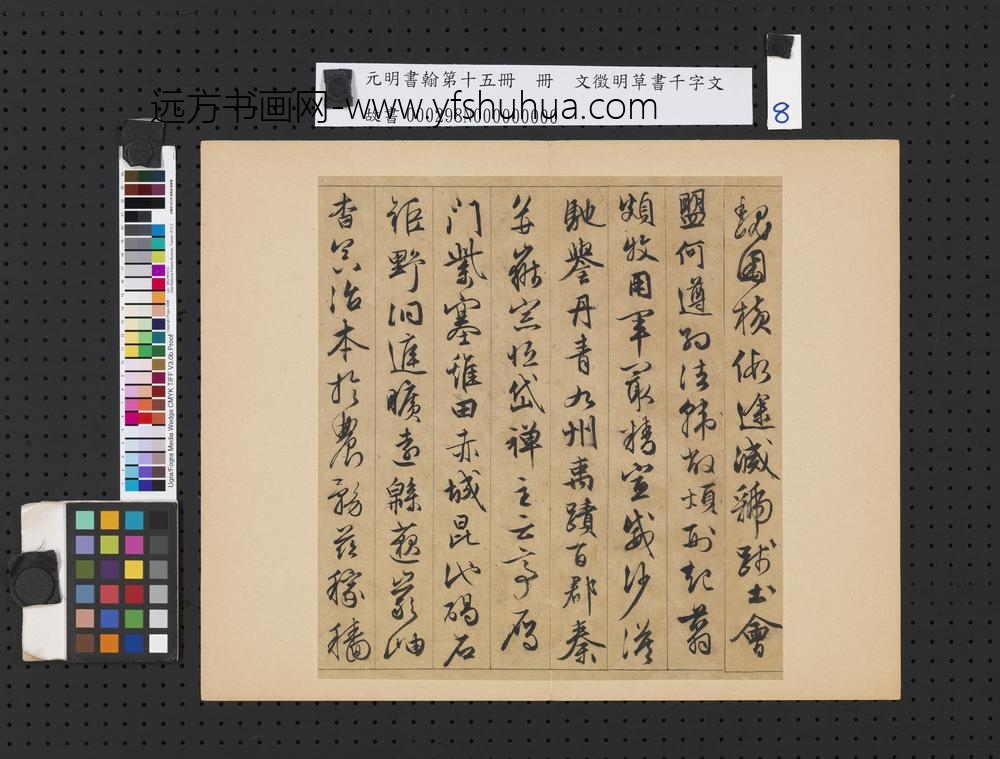 元明書翰第十五冊　冊　文徵明草書千字文
故書 000298N000000000
远方书画网-www.yfshuhua.com
8
魏困橫假途滅虢踐土會
盟何遵約法韓弊煩刑起翦
頗牧用軍最精宣威沙漠
馳譽丹青九州禹蹟百郡秦
并嶽宗恒岱禪主云亭雁
門紫塞雞田赤城昆池碣石
鉅野洞庭曠遠緜邈巖岫
杳冥治本於農務茲稼穡
Ugra/Fogra Media Wedge CMYK TIFF V3.0b Proof